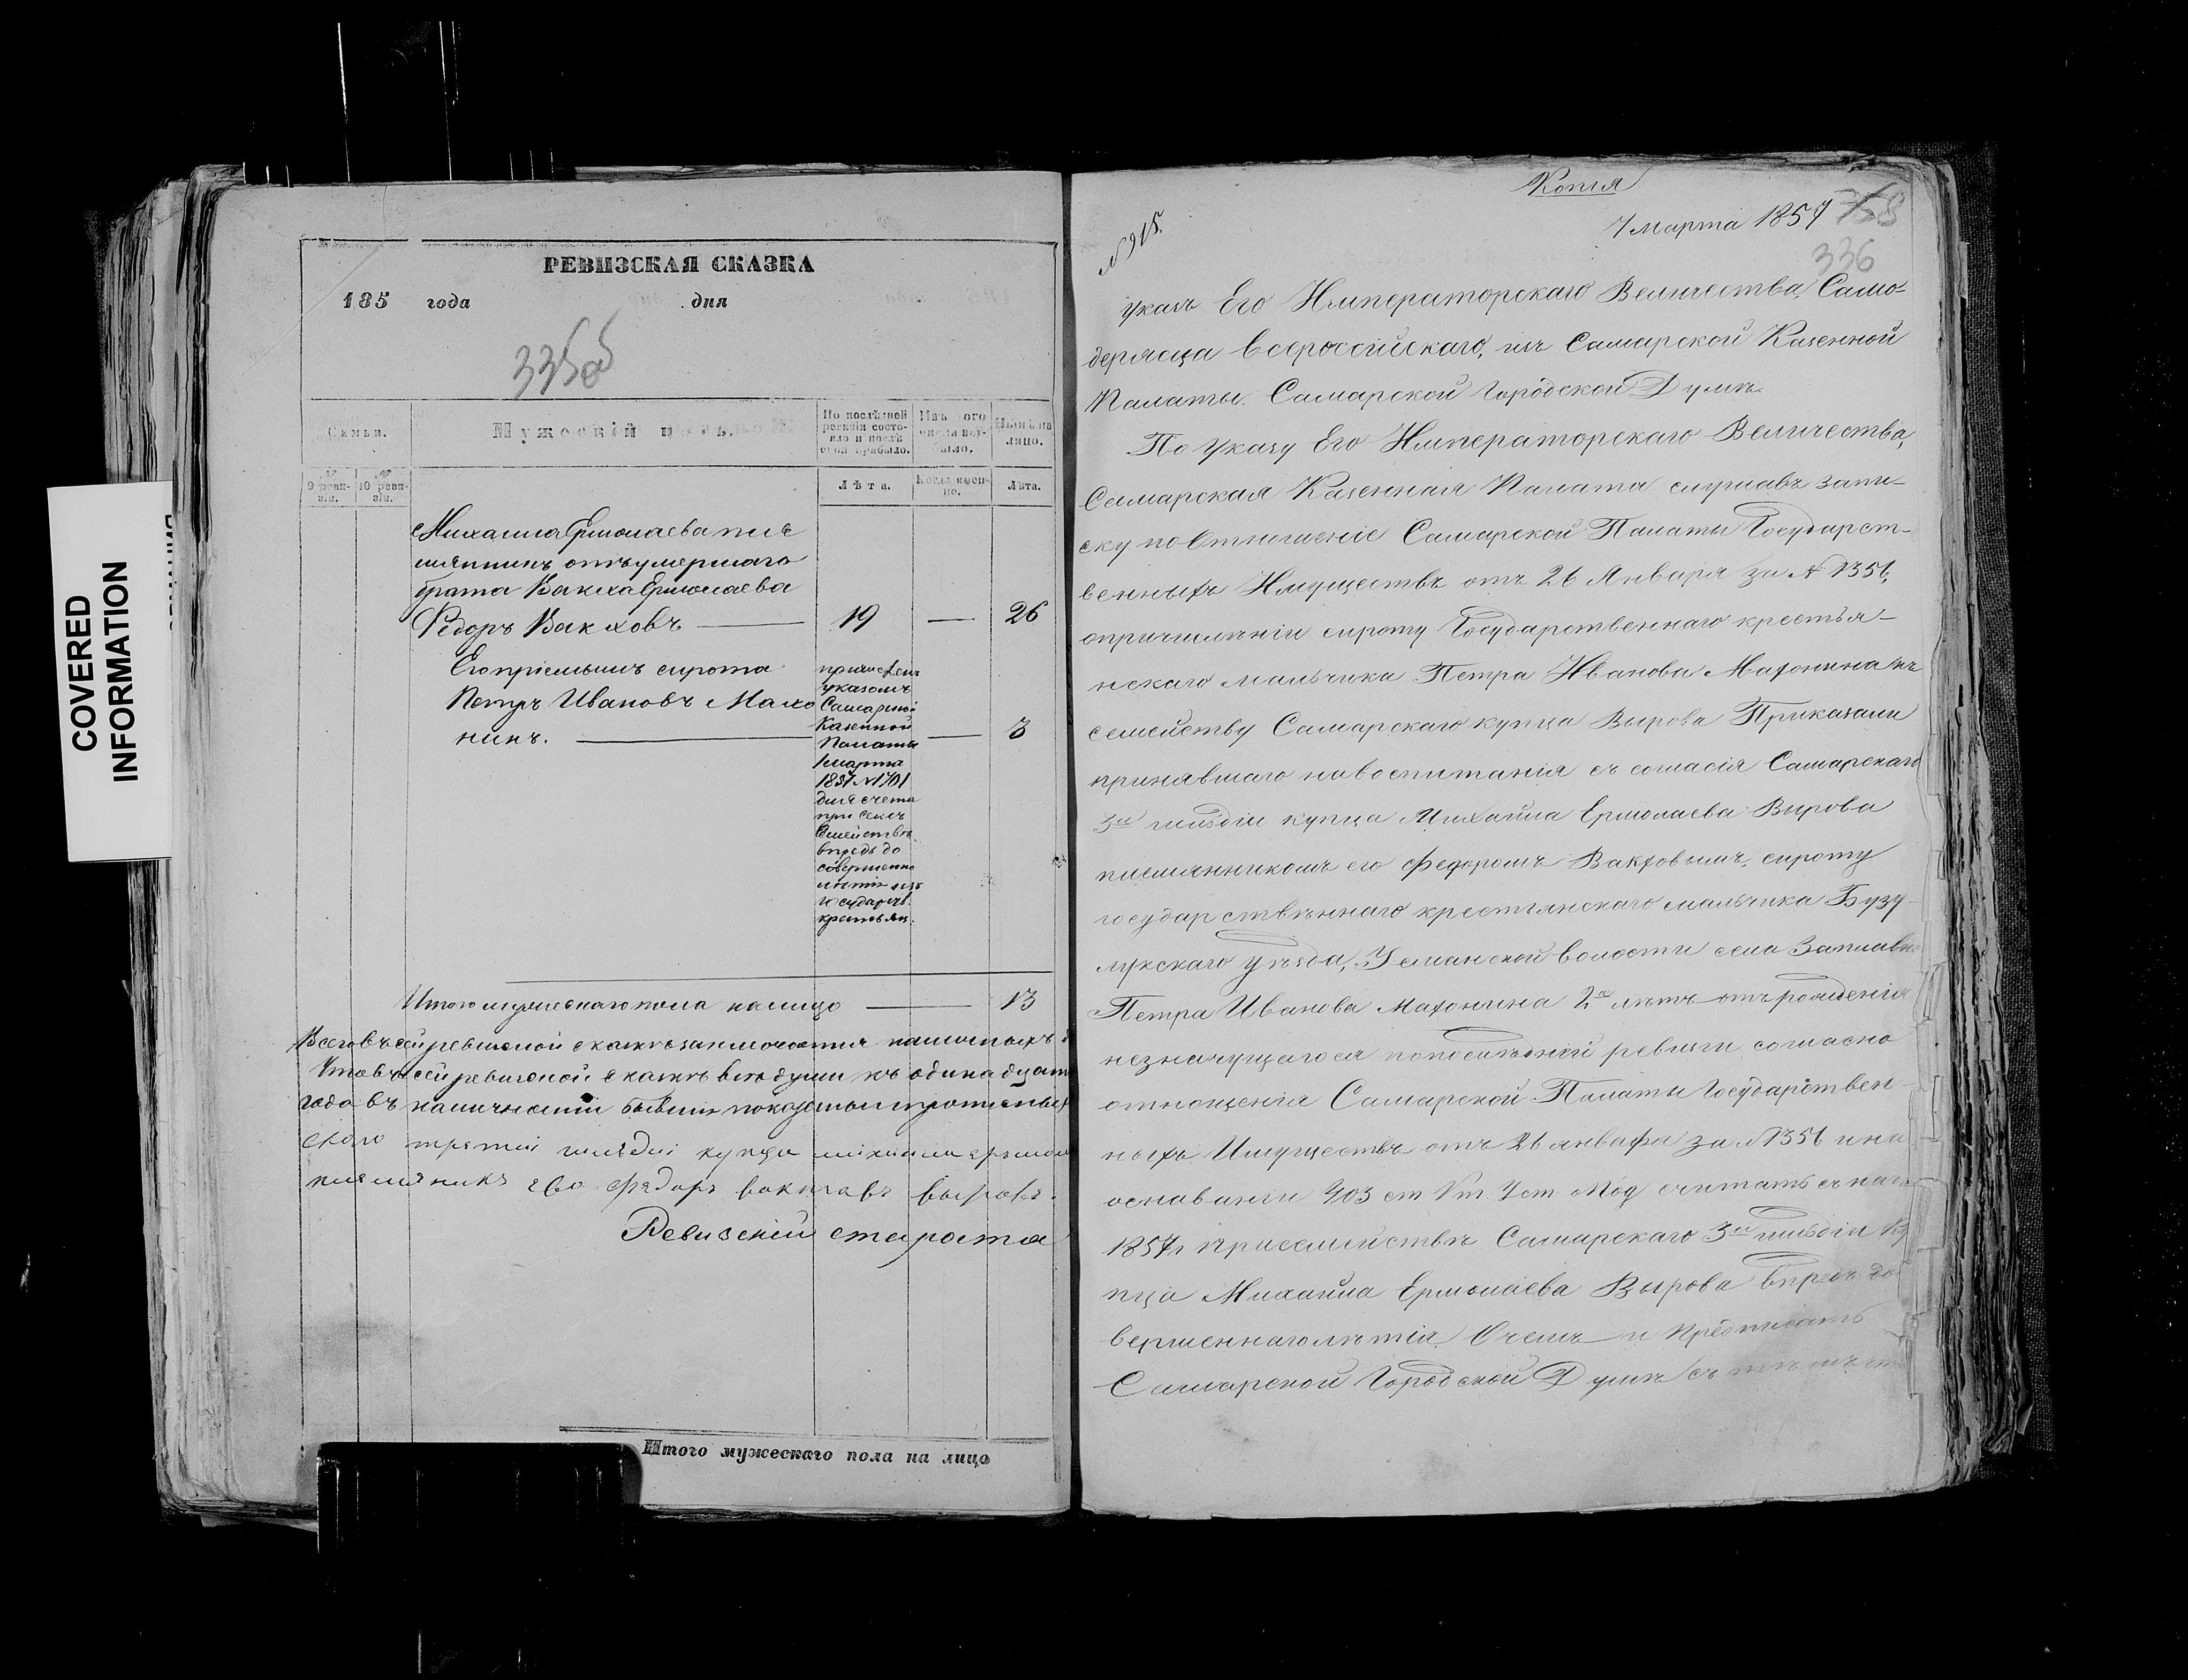 COVERED
INFORMATION
РЕВИЗСКАЯ СКАЗКА
185 года дня
335об
Семьи.
Мужескій полъ.
По послѣдней ревизіи состояло и послѣ оной прибыло.
Изъ того числа выбыло.
Нынѣ на лицо.
№ 9 ревизіи.
№ 10 ревизіи.
Лѣта.
Когда именно.
Лѣта.
Михаила Ермолаева пле
мянникъ отъ умершаго
брата Вакха Ермолаева
Федоръ Вакховъ — 19 — 26
Его пріемышъ сирота
Петръ Ивановъ Махо
нинъ. — 3
причислен
указомъ
Самарской
Казенной
Палаты
1 марта
1857 № 1701
для счета
при семъ
Семействѣ
впредь до
совершенно
лѣтія изъ
государств.
крестьян.
Итого мужескаго пола налицо — 13
Всего въ сей ревизской сказкѣ заключается наличныхъ
Что въ сей ревизской сказкѣ всѣ души къ одинадцат
года въ наличности бывшія показаны и пропис
третій гилдіи купца михаила ермол
племяникъ ево федоръ вакховъ выровъ.
Ревизскій староста
Итого мужескаго пола на лицо
Копія
№ 915.
7 марта 1857
758
336
Указъ Его Императорскаго Величества, Само-
держца всероссійскаго, изъ Самарской Казенной
Палаты. Самарской Городской Думѣ.
По Указу Его Императорскаго Величества,
Самарская Казенная Палата слушавъ запи-
ску по отношеніе Самарской Палаты Государст-
венныхъ Имуществъ отъ 26 Января за № 1351,
опричисленіи сироту Государственнаго крестья-
нскаго мальчика Петра Иванова Махонина къ
семейству Самарскаго купца Вырова Приказали
принявшаго навоспитанія съ согласія Самарскаго
3ей гильдіи купца Михайла Ермолаева Вырова
племянникомъ его Федоромъ Вакховымъ, сироту
государственнаго крестьянскаго мальчика Бузу-
лукскаго уѣзда, Усманской волости села Заплавн
Петра Иванова Махонина 2хъ лѣтъ отъ рожденія
незначущагося попослѣдней ревизіи согласно
отнощенія Самарской Палаты Государствен-
ныхъ Имуществъ отъ 26 января за № 1351 и на
основаніи 403 ст V т. Уст считать съ
1857 г присемействѣ Самарскаго 3ей гильдіи Ку
пца Михайла Ермолаева Вырова впредь до
вершеннаголѣтія. О чемъ и предписать
Самарской Городской Думѣ съ тѣмъ